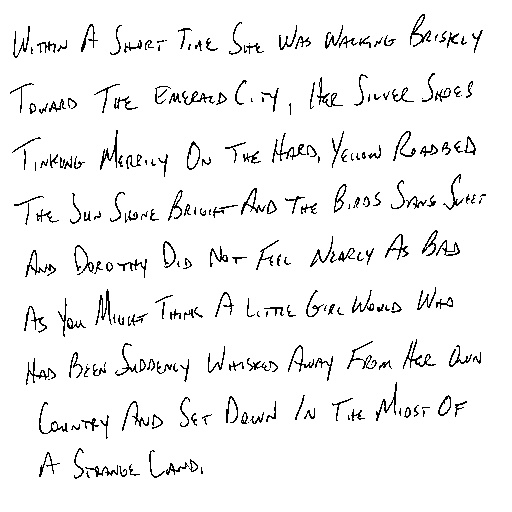 Within A Short Time She Was Walking Briskly
Toward The Emerald City, Her Silver Shoes
Tinkling Merrily On The Hard, Yellow Roadbed
The Sun Shone Bright And The Birds Sang Sweet
And Dorothy Did Not Feel Nearly As Bad
As You Might Think A Little Girl Would Who
Had Been Suddenly Whisked Away From Her Own
Country And Set Down In The Midst Of
A Strange Land.